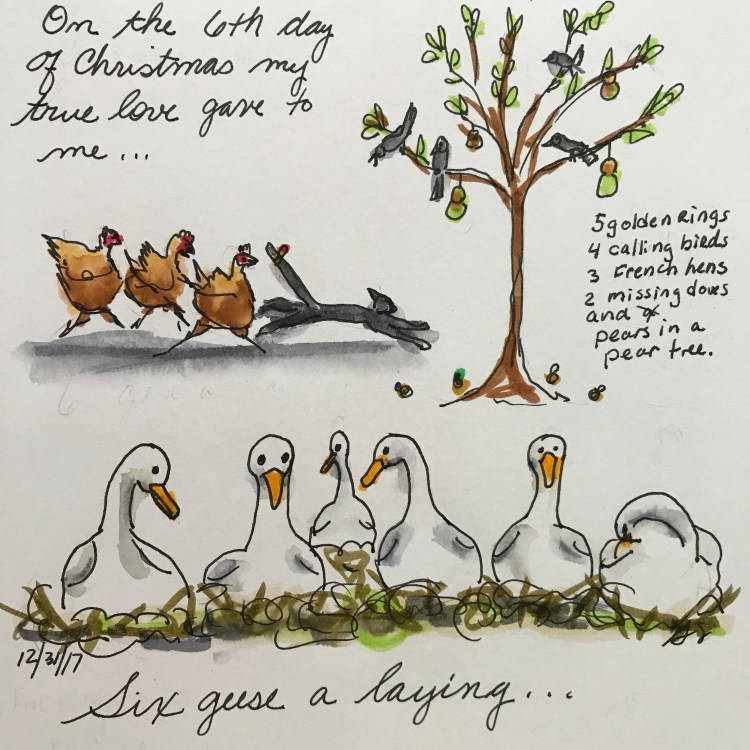 On the 6th day
of Christmas my
true love gave to
me...
5 golden Rings
4 calling birds
3 French hens
2 missing doves
and
pears in a
pear tree.
12/31/17
Six geese a laying...